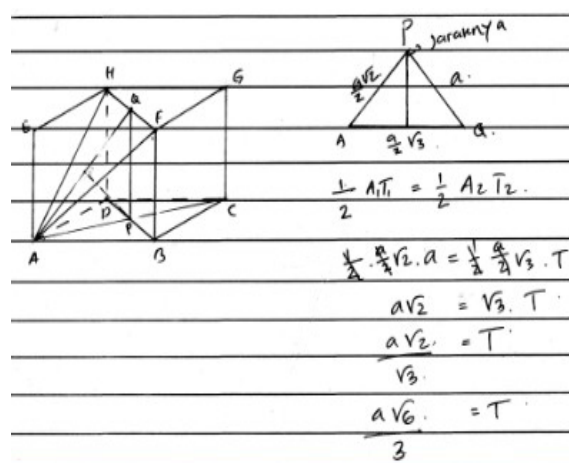 H
G
Q
E
F
D
C
P
A
B
P
Jaraknya
a/2 √2
a.
A
Q.
a/2 √3
1/2 A₁T₁ = 1/2 A₂ T₂.
1/2 . a/2 √2 . a = 1/2 a/2 √3 . T
a√2 = √3 . T
a√2. / √3. = T
a√6. / 3 = T